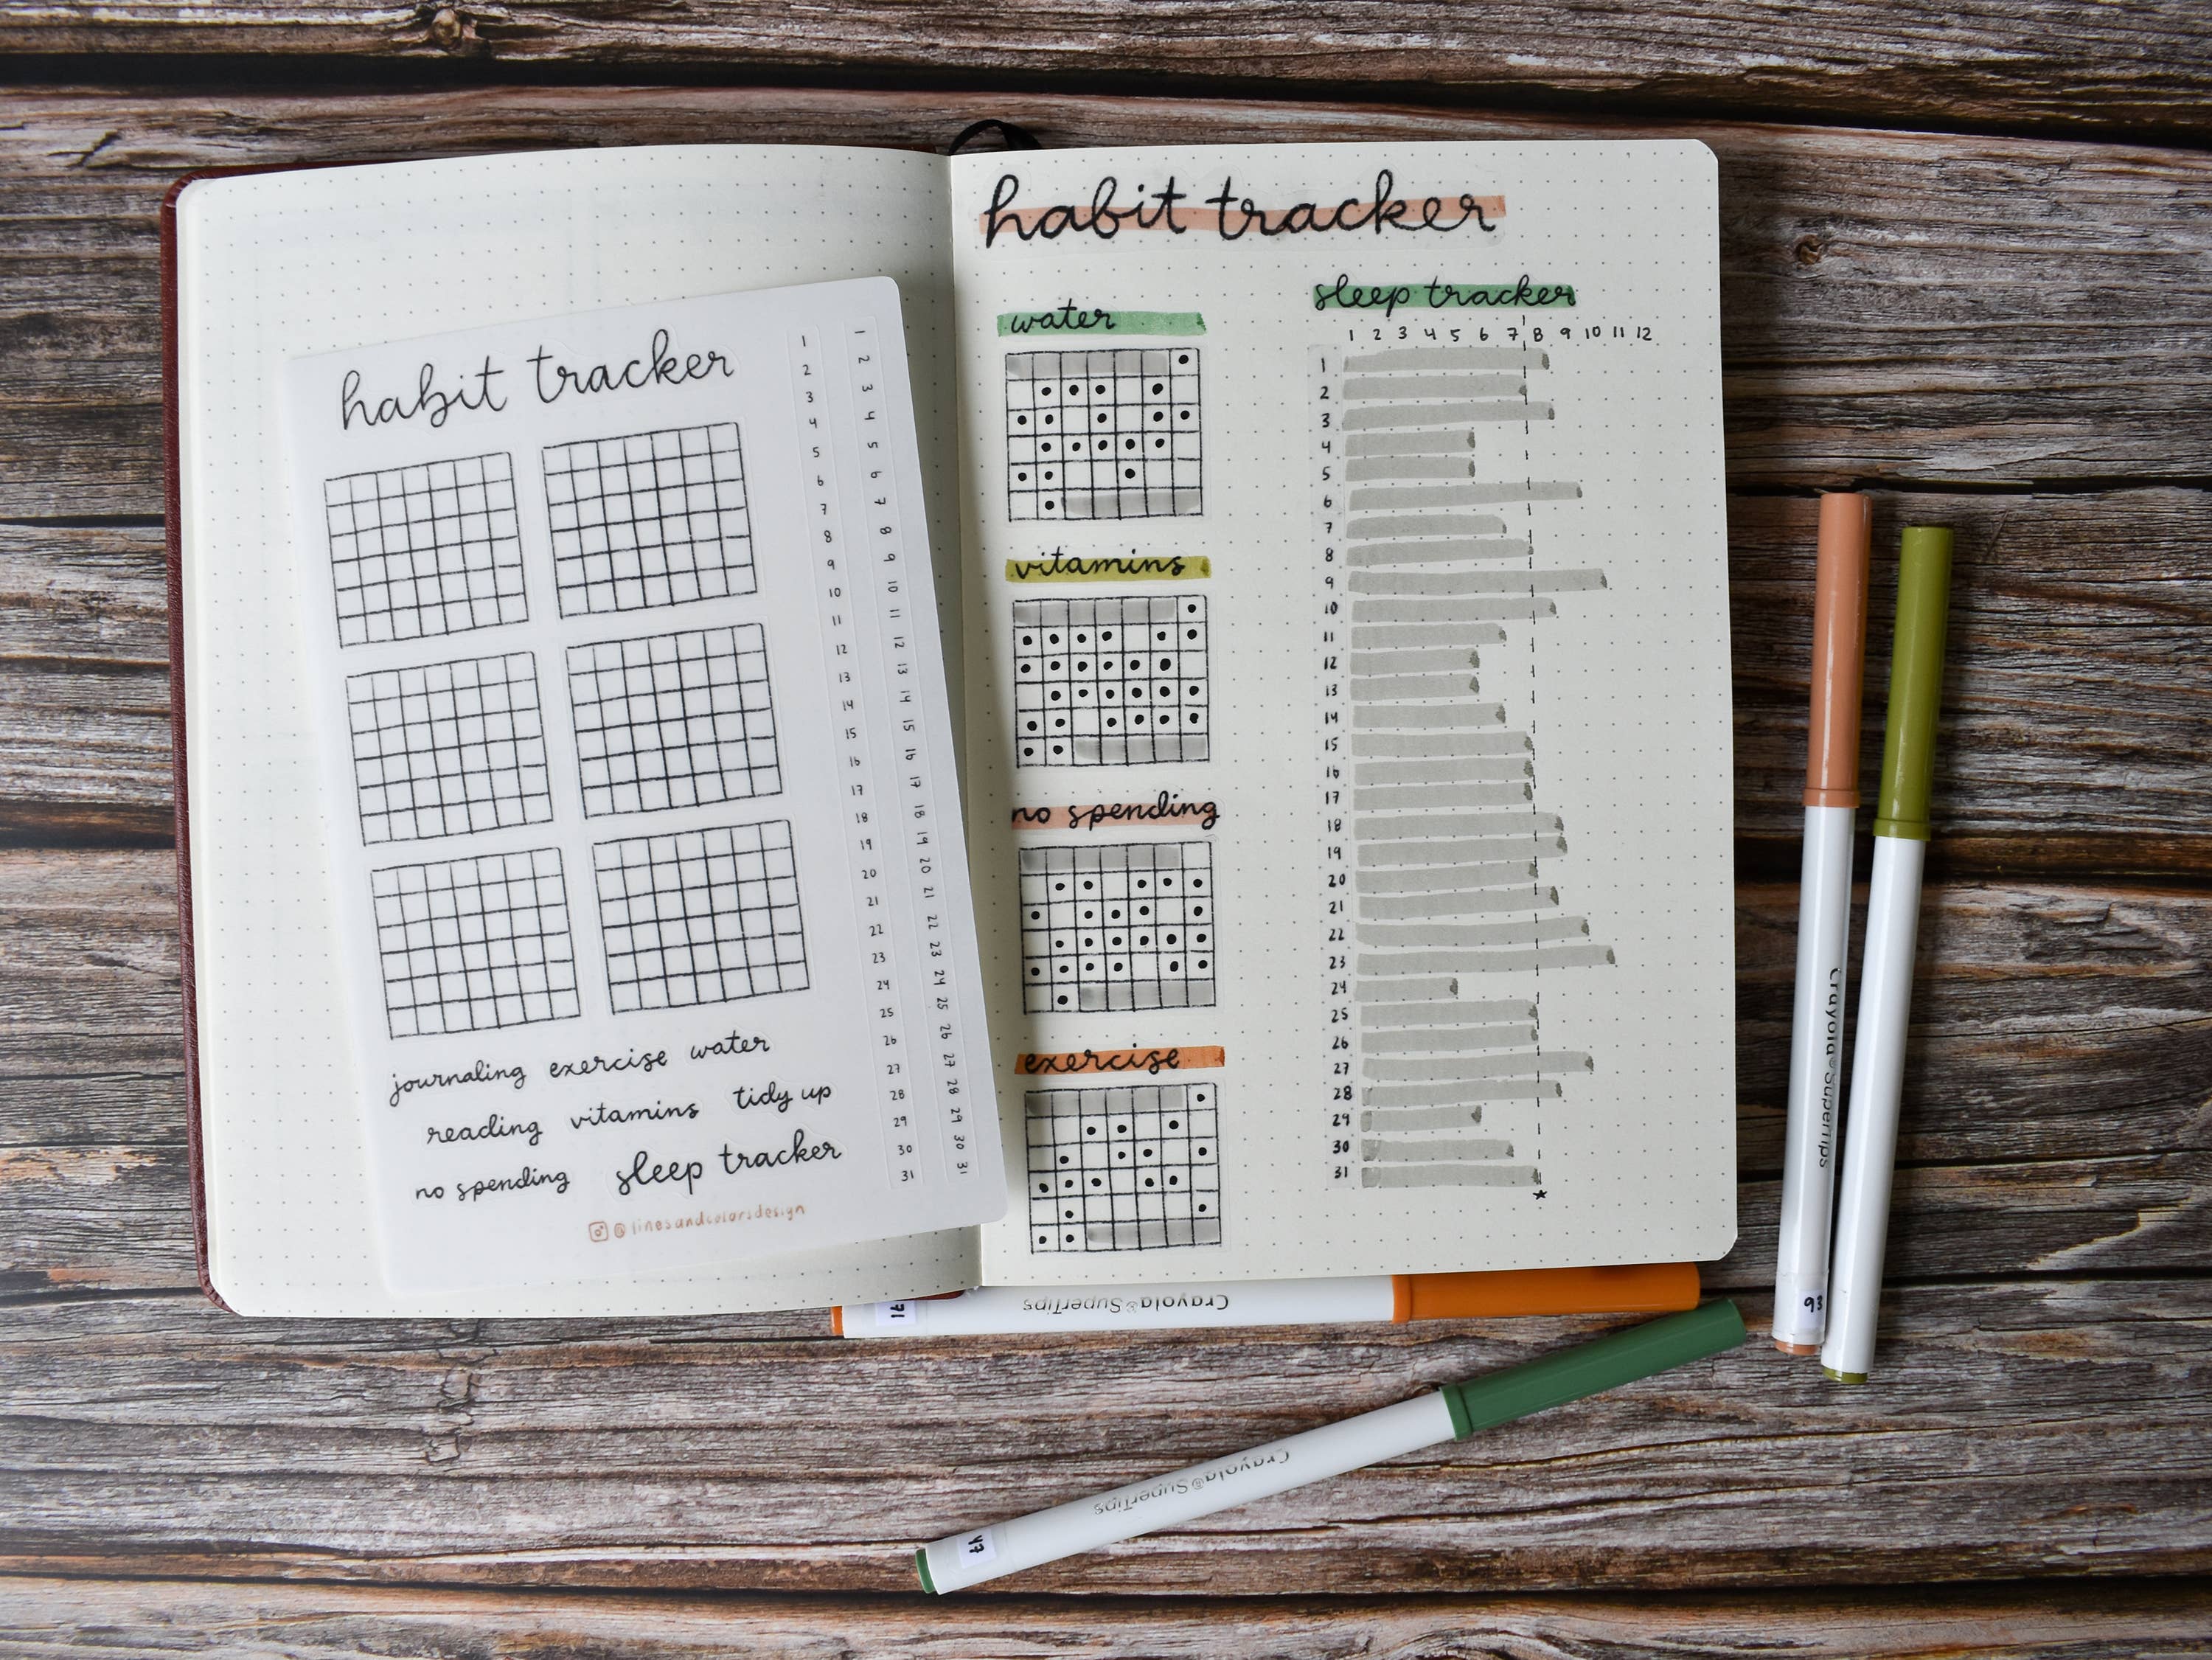 habit tracker
journaling exercise water
reading vitamins tidy up
no spending sleep tracker
@linesandcolorsdesign
1
2
3
4
5
6
7
8
9
10
11
12
13
14
15
16
17
18
19
20
21
22
23
24
25
26
27
28
29
30
31
1
2
3
4
5
6
7
8
9
10
11
12
13
14
15
16
17
18
19
20
21
22
23
24
25
26
27
28
29
30
31
habit tracker
water
vitamins
no spending
exercise
sleep tracker
1 2 3 4 5 6 7 8 9 10 11 12
1
2
3
4
5
6
7
8
9
10
11
12
13
14
15
16
17
18
19
20
21
22
23
24
25
26
27
28
29
30
31
*
Crayola® SuperTips
93
Crayola® SuperTips
71
Crayola® SuperTips
47